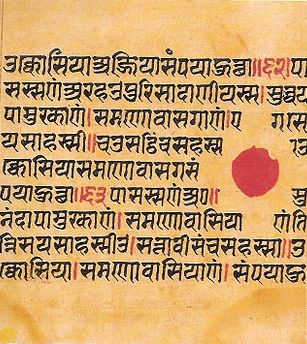 उक्कोसिया अज्जियासंपयाहुत्था॥६२॥पा
सस्सणंअरहउपुरिसादाणीयस्स।सुव्वय
पामुक्काणं।समणोवासगाणं।ए
यसाहस्सी।चउसट्ठिंचसहस्स
क्कोसियासमणोवासगसं
पयाहुत्था॥६३पासस्सणंअर॥
नंदापामुक्काणं।समणोवासियाणंति
न्निसयसाहस्सीउ।सत्तावीसंचसहस्सा॥उ
क्कोसिया।समणोवासियाणं।संपयाहु